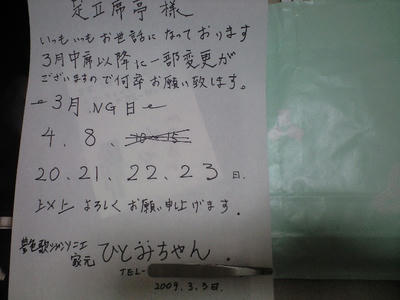 足立席亭様
いつもいつもお世話になっております
3月中席以降に一部変更が
ございますので何卒お願い致します。
3月NG日
4、8、
20、21、22、23日.
以上よろしくお願い申し上げます.
家元 ひとみちゃん.
TEL-
2009.3.3日.